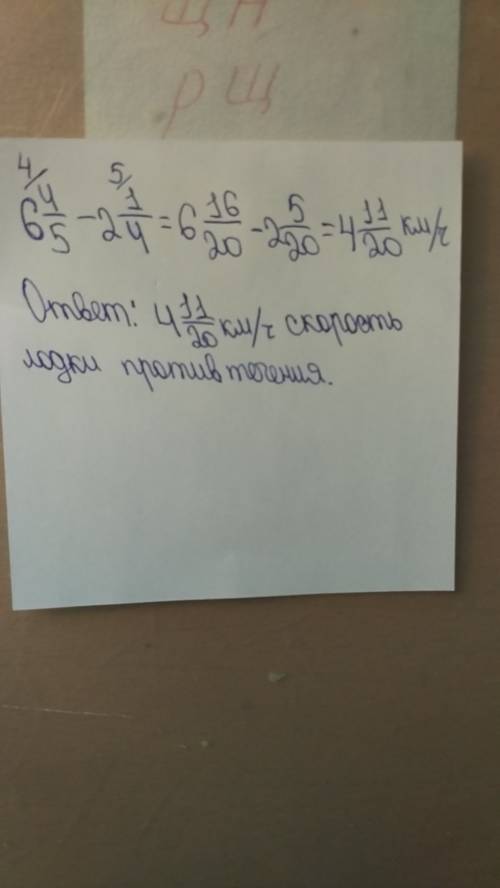 ЩН
рЩ
4/ 5/
6 4/5 - 2 1/4 = 6 16/20 - 2 5/20 = 4 11/20 км/ч
Ответ: 4 11/20 км/ч скорость
лодки против течения.